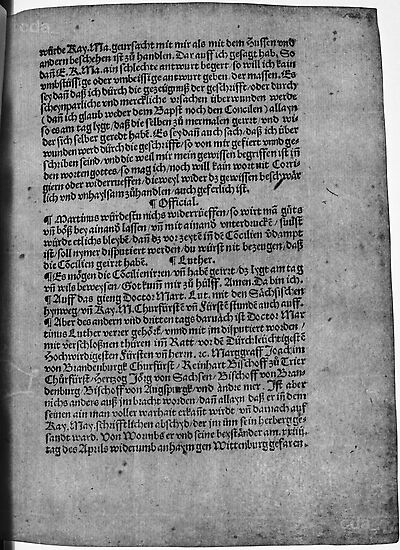 würde Kay. Ma. geursacht mit mir als mit dem Hussen vnd
andern beschehen ist zů handlen. Dar auff ich gesagt hab, So
dañ E. K. Ma. ain schlechte antwurt begert, so will ich kain
vmbstüssige oder vmbeissige antwurt geben, der massen. Es
sey dañ daß ich durch die gezeügnuß der geschrifft, oder durch
scheynparliche vnd merckliche vrsachen überwunden werde
(dañ ich glaub weder dem Bapst noch den Concilien allayn
so es am tag lygt, daß die selben zů mermalen geirrt, vnd wi-
der sich selber geredt habẽ. Es sey dañ auch sach, daß ich über
wunden werd durch die geschrifft, so von mir gefiert vnnd ge-
schriben seind, vnd die weil mir mein gewissen begriffen ist in
den worten gottes, so mag ich, noch will kain wort nit Corri-
gieren oder widerrueffen, die weyl wider dz gewissen beschwär
lich vnd vnhaylsam zů handlen, auch geferlich ist.
¶ Official.
¶ Martinus würdestu nichs widerrüeffen, so wirt mã güts
vñ böß bey ainand lassen, vñ mit ainand vnterdruckẽ, sunst
würde etlichs bleybẽ, dañ dz vor zeytẽ in dẽ Cõcilien v̈dampt
ist, soll nymer disputiert werden, du würst nit bezeugen, daß
die Cõcilien geirrt habẽ. ¶ Luther.
¶ Es mögen die Cõcilien irren, vñ habẽ geirrt, dz lygt am tag
vñ wils beweysen, Got kum mir zů hülff, Amen. Da bin ich.
¶ Auff das gieng Doctor Mart. Lut. mit den Sächsischen
hynweg, vñ Kay. M. Churfürstẽ vñ Fürstẽ stunde auch auff.
¶ Aber des andern vnd dritten tags darnach ist Doctor Mar
tinus Luther verrer gehört, vnnd mit im disputiert worden,
mit verschloßnen thüren im Ratt vor de Durchleüchtigestẽ
Hochwirdigesten Fürsten vñ herrn. ꝛc. Marggraff Joachim
von Brandenburgk Churfürst, Reinhart Bischoff zů Trier
Churfürst, Hertzog Jörg von Sachsen, Bischoff von Bran-
denburg, Bischoff von Augspurgk, vnd andre mer. Ist aber
nichs anders auß im bracht worden, dañ allayn daß er in dem
seinen ain man voller warhait erkañt wirdt vñ darnach auff
Kay. May. schrifftlichen abschyd, der jm inn sein herberg ge-
sandt ward. Von Wormbs er vnd seine beyständer am. xxiii.
tag des Aprils widerumb anhaym gen Wittenburg gefaren.